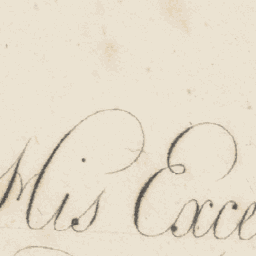 His Exce